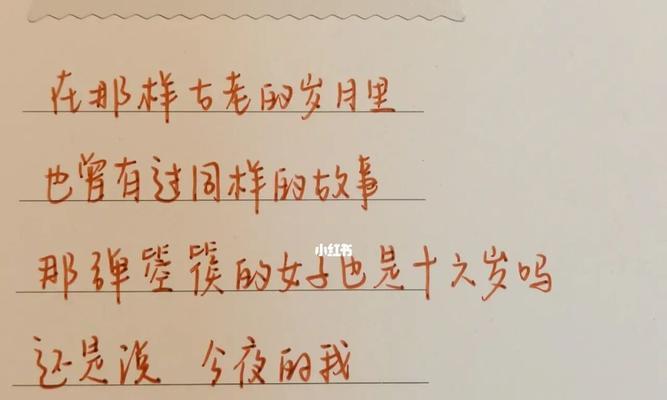 在那样古老的岁月里
也曾有过同样的故事
那弹箜篌的女子也是十六岁吗
小红书
还是说 今夜的我